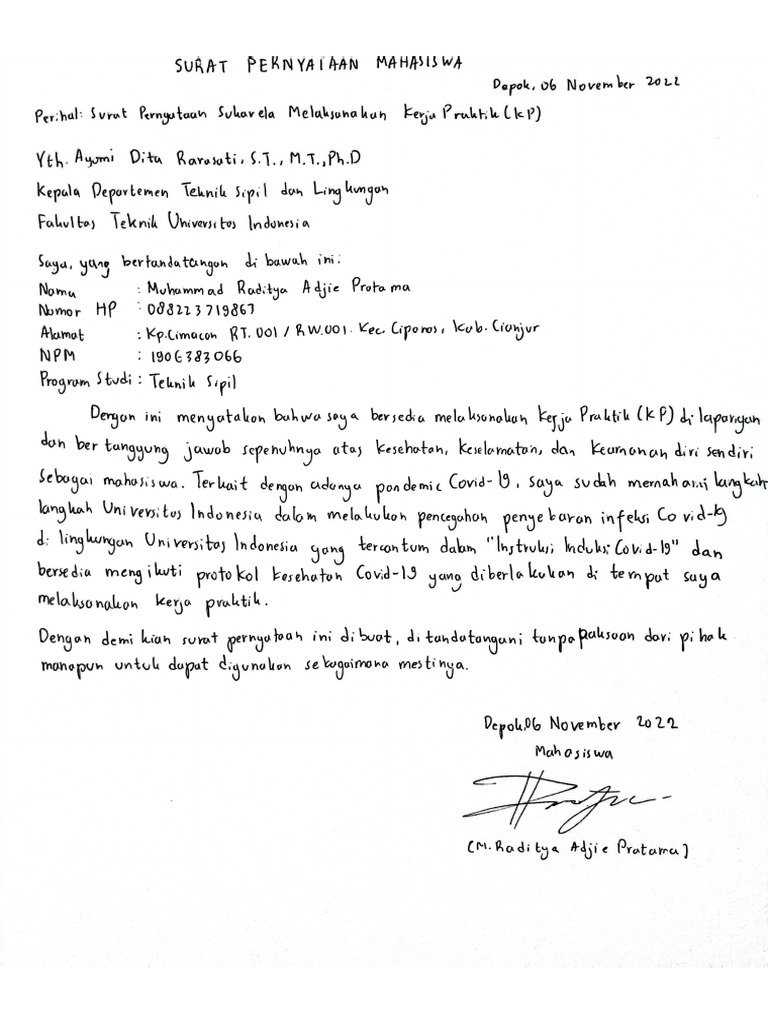 SURAT PERNYATAAN MAHASISWA
Depok, 06 November 2022
Perihal: Surat Pernyataan Sukarela Melaksanakan Kerja Praktik (KP)
Yth. Ayomi Dita Rarasati, S.T., M.T., Ph.D
Kepala Departemen Teknik Sipil dan Lingkungan
Fakultas Teknik Universitas Indonesia
Saya, yang bertandatangan di bawah ini:
Nama : Muhammad Raditya Adjie Pratama
Nomor HP : 088223719867
Alamat : Kp.Cimacan RT. 001 / RW.001. Kec. Cipanas, Kab. Cianjur
NPM : 1906383066
Program Studi : Teknik Sipil
Dengan ini menyatakan bahwa saya bersedia melaksanakan Kerja Praktik (KP) di lapangan
dan bertanggung jawab sepenuhnya atas kesehatan, keselamatan, dan keamanan diri sendiri
sebagai mahasiswa. Terkait dengan adanya pandemic Covid-19, saya sudah memahami langkah
langkah Universitas Indonesia dalam melakukan pencegahan penyebaran infeksi Covid-19
di lingkungan Universitas Indonesia yang tercantum dalam "Instruksi Induksi Covid-19" dan
bersedia mengikuti protokol kesehatan Covid-19 yang diberlakukan di tempat saya
melaksanakan kerja praktik.
Dengan demikian surat pernyataan ini dibuat, ditandatangani tanpa paksaan dari pihak
manapun untuk dapat digunakan sebagaimana mestinya.
Depok, 06 November 2022
Mahasiswa
(M. Raditya Adjie Pratama)